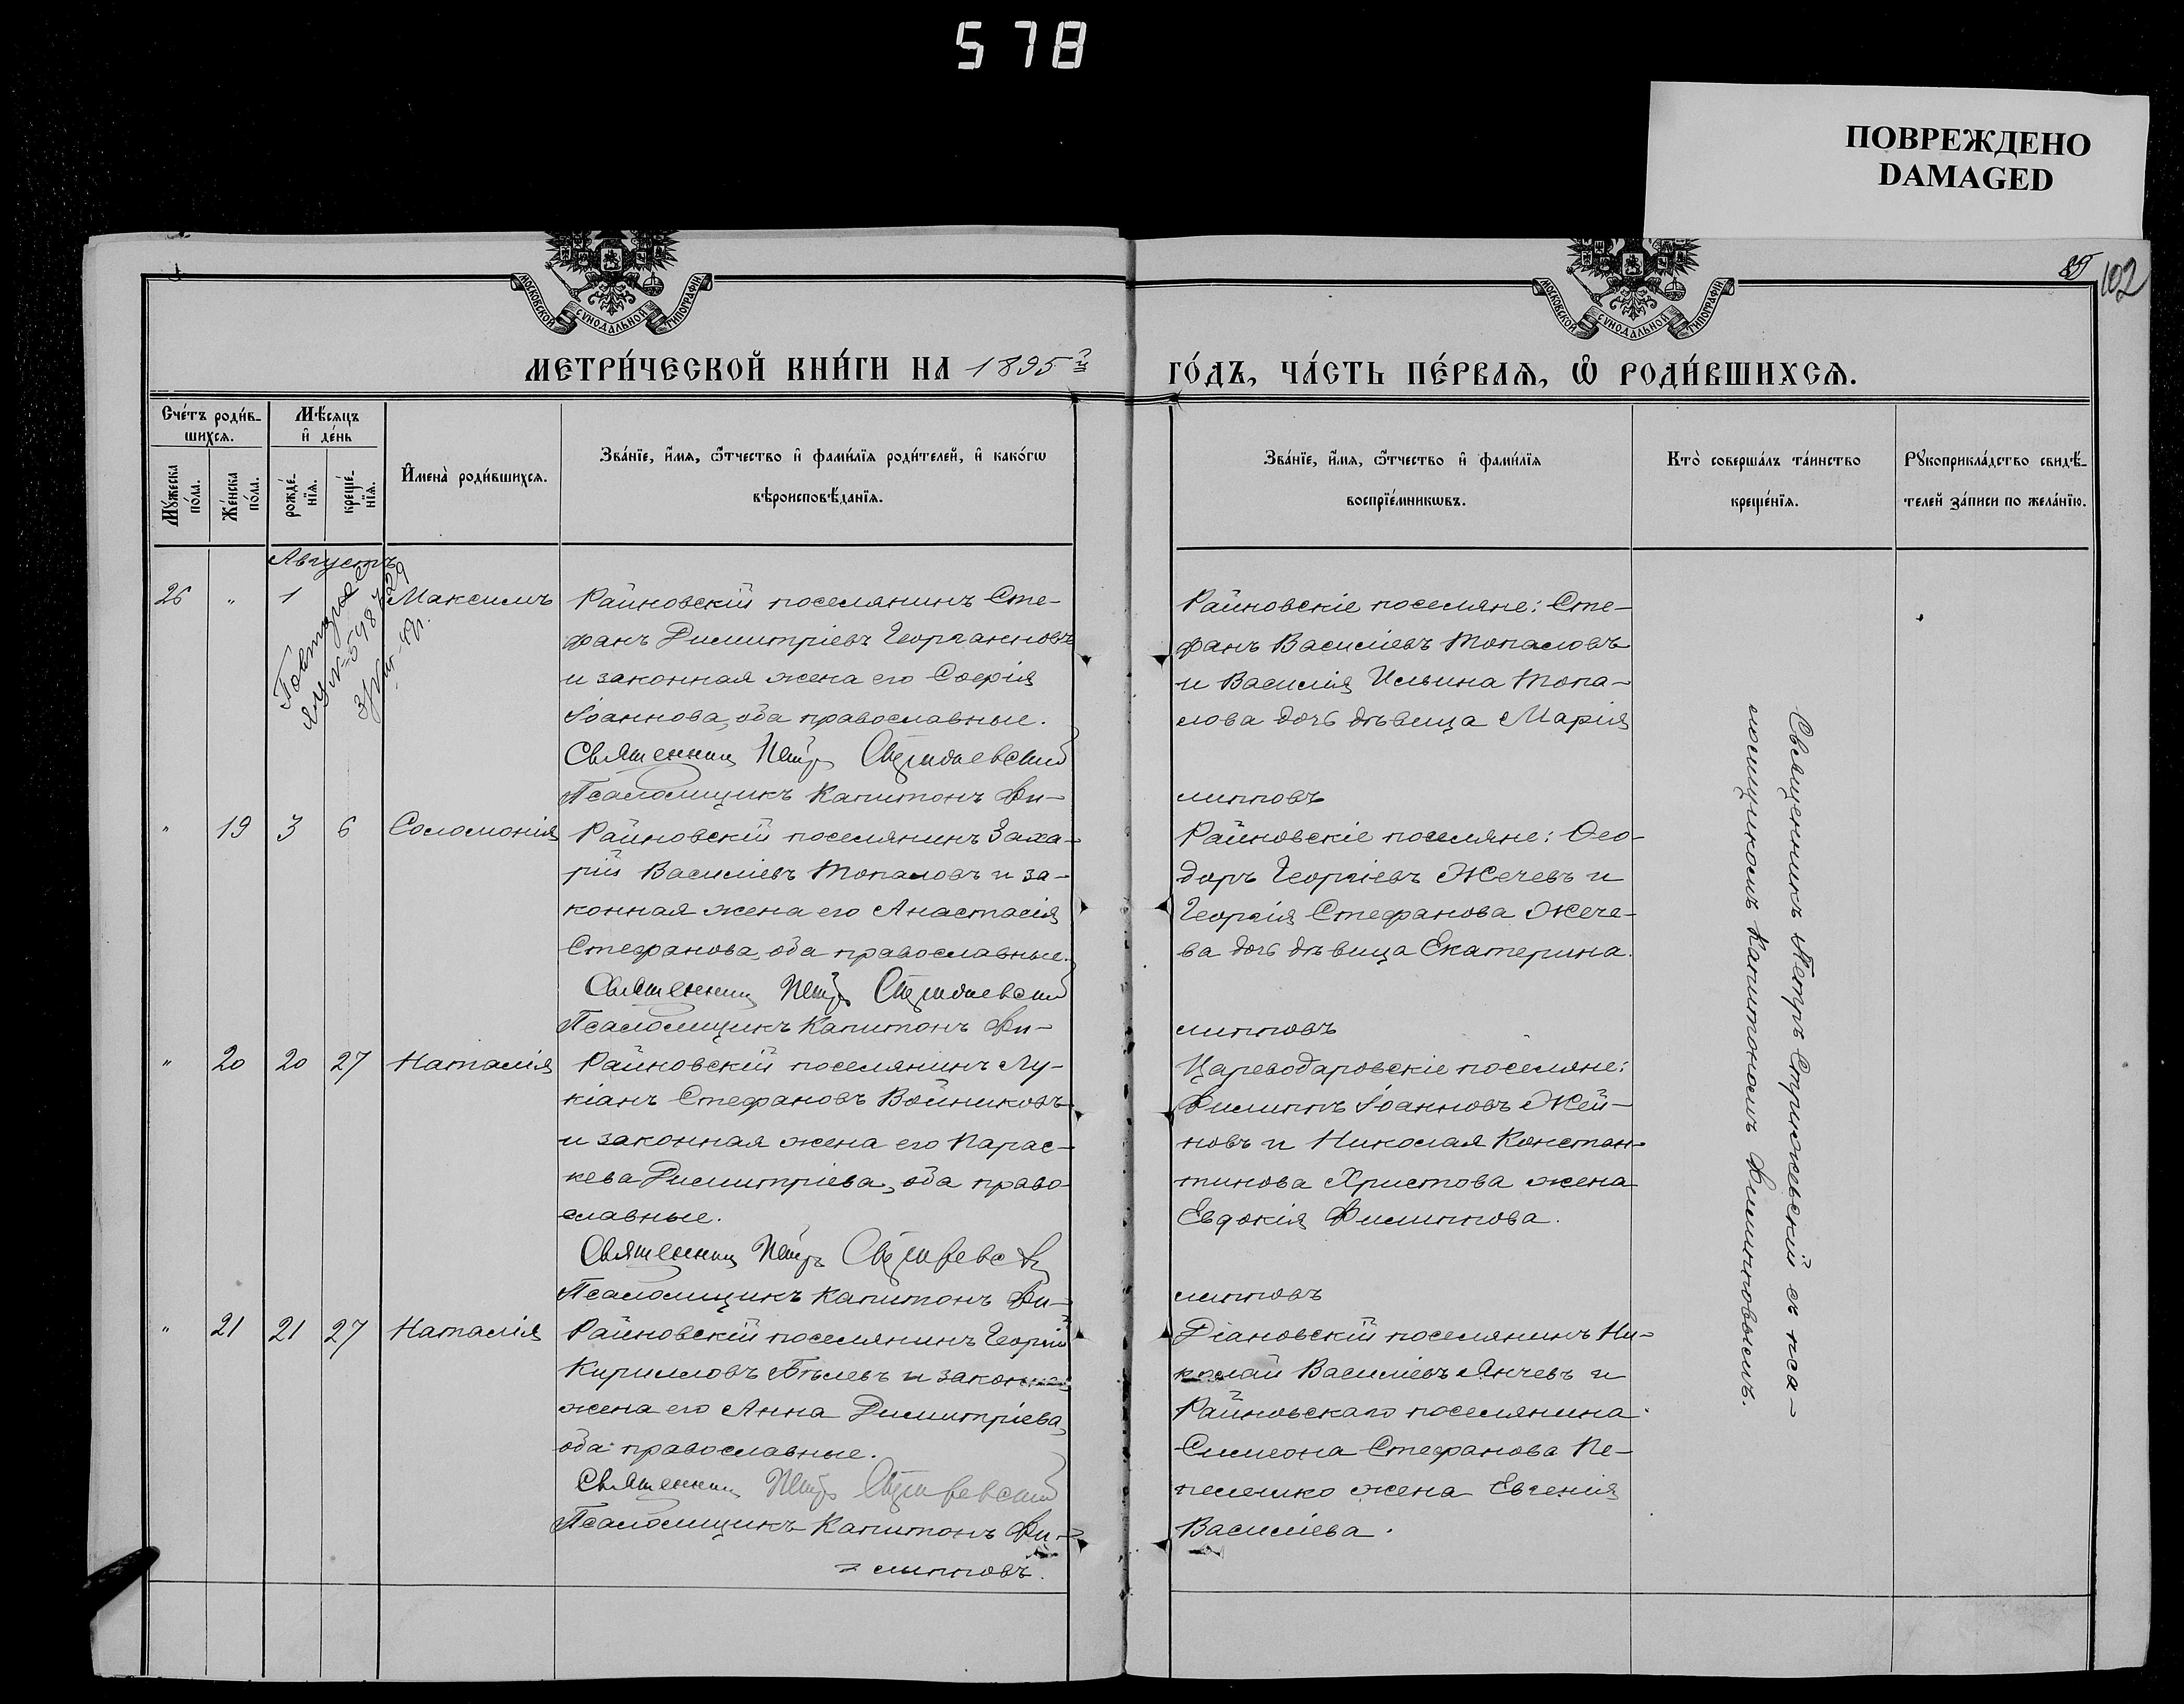 578
ПОВРЕЖДЕНО
DAMAGED
102
МОСКОВСКОЙ СѴНОДАЛЬНОЙ ТИПОГРАФІИ
МОСКОВСКОЙ СѴНОДАЛЬНОЙ ТИПОГРАФІИ
МЕТРИ́ЧЕСКОЙ КНИ́ГИ НА 1895й
ГО́ДЪ, ЧА́СТЬ ПЕ́РВАѦ, Ѡ҆ РОДИ́ВШИХСѦ.
Сче́тъ роди́в-
шихсѧ.
Мѣ́сѧцъ
и҆ де́нь
Мꙋ́жеска
по́ла.
Же́нска
по́ла.
рожде́-
нїѧ.
креще́-
нїѧ.
И҆мена̀ роди́вшихсѧ.
Зва́нїе, и҆́мѧ, ѻ҆́тчество и҆ фами́лїѧ роди́телей, и҆ како́гѡ
вѣроисповѣ́данїѧ.
Зва́нїе, и҆́мѧ, ѻ҆́тчество и҆ фами́лїѧ
воспрїе́мникѡвъ.
Кто̀ соверша́лъ та́инство
креще́нїѧ.
Рꙋкоприкла́дство свидѣ́-
телей за́писи по жела́нїю.
Августъ
26 " 1 Максимъ
Райновскій поселянинъ Сте-
фанъ Димитріевъ Георганновъ
и законная жена его Софія
Іоаннова, оба православные.
Священник Петр Стрижевский
Псаломщикъ Капитонъ Фи-
Райновскіе поселяне: Сте-
фанъ Василіевъ Топаловъ
и Василія Ильина Топа-
лова дочь дѣвица Марія
липповъ
" 19 3 6 Соломонія
Райновскій поселянинъ Заха-
рій Василіевъ Топаловъ и за-
конная жена его Анастасія
Стефанова, оба православные.
Священник Петр Стрижевский
Псаломщикъ Капитонъ Фи-
Райновскіе поселяне: Ѳео-
доръ Георгіевъ Жечевъ и
Георгія Стефанова Жече-
ва дочь дѣвица Екатерина.
липповъ
" 20 20 27 Наталія
Райновскій поселянинъ Лу-
кіанъ Стефановъ Войниковъ
и законная жена его Парас-
кева Димитріева, оба право-
славные.
Священник Петръ Стрижевский
Псаломщикъ Капитонъ Фи-
Цареводаровскіе поселяне:
Филиппъ Іоанновъ Жей-
новъ и Николая Констан-
тинова Христова жена
Евдокія Филиппова.
липповъ
" 21 21 27 Наталія
Райновскій поселянинъ Георгій
Кирилловъ Бѣлевъ и законная
жена его Анна Димитріева,
оба православные.
Священник Петр Стрижевский
Псаломщикъ Капитонъ Фи-
липповъ.
Діановскій поселянинъ Ни-
колай Василіевъ Янчевъ и
Райновскаго поселянина
Симеона Стефанова Пе-
пелешко жена Евгенія
Василіева.
Священникъ Петръ Стрижевскій съ пса-
ломщикомъ Капитономъ Филипповымъ.